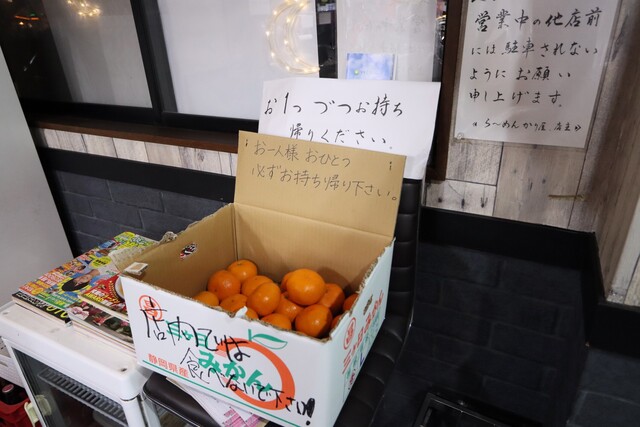 営業中の他店前
には駐車されない
ようにお願い
申し上げます。
らーめんかり屋 店主
お1つづつお持ち
帰りください。
お一人様 おひとつ
必ずお持ち帰り下さい。
店内では
食べないで下さい!
みかん
静岡県産